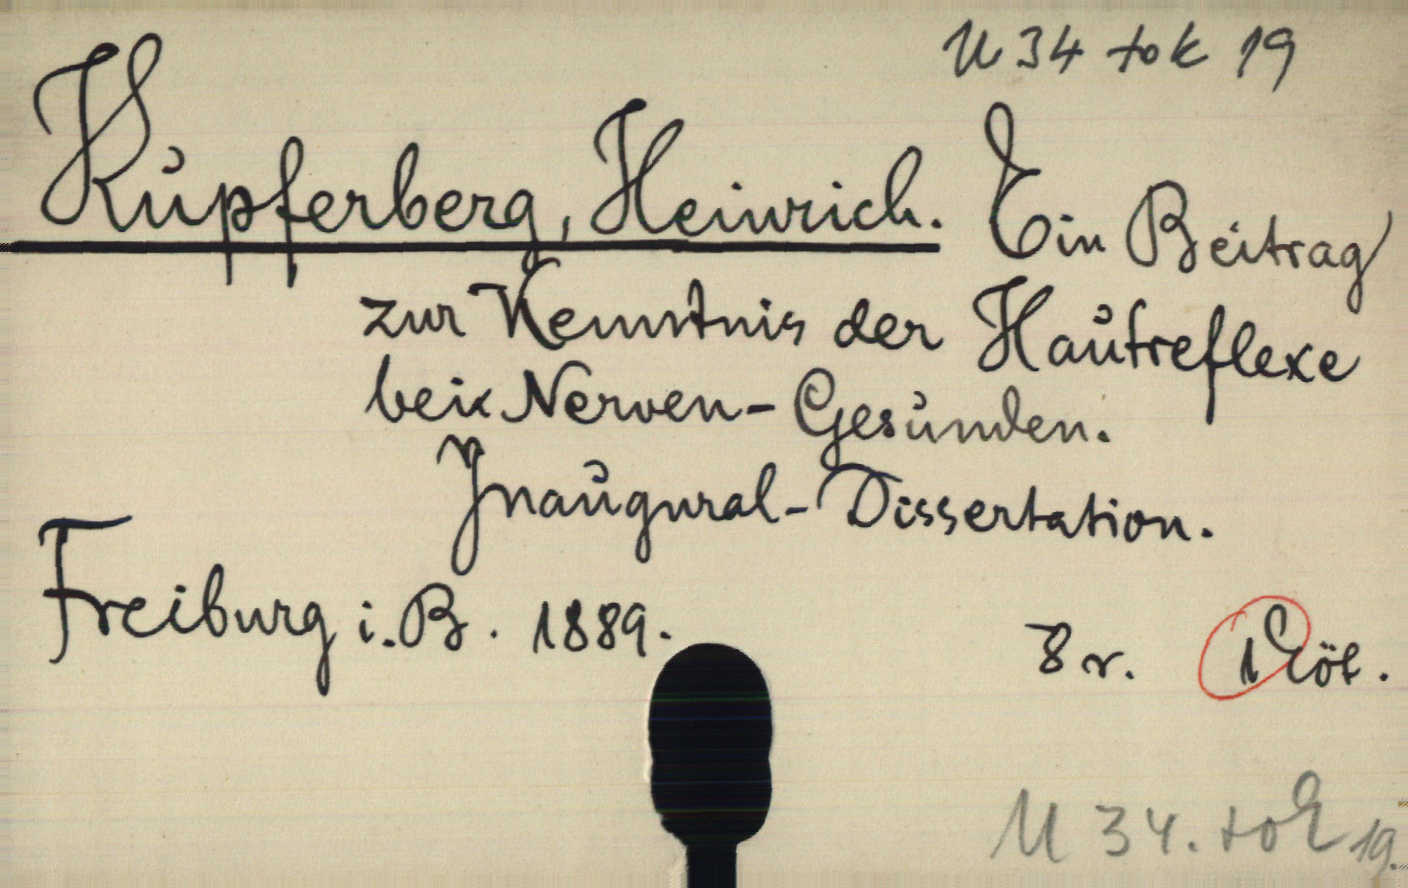 U 34 tok 19
Kupferberg, Heinrich. Ein Beitrag
zur Kenntnis der Hautreflexe
bei Nerven-Gesunden.
Inaugural-Dissertation.
Freiburg i. B. 1889. 8 r. 1 Köt.
U 34. tok 19.